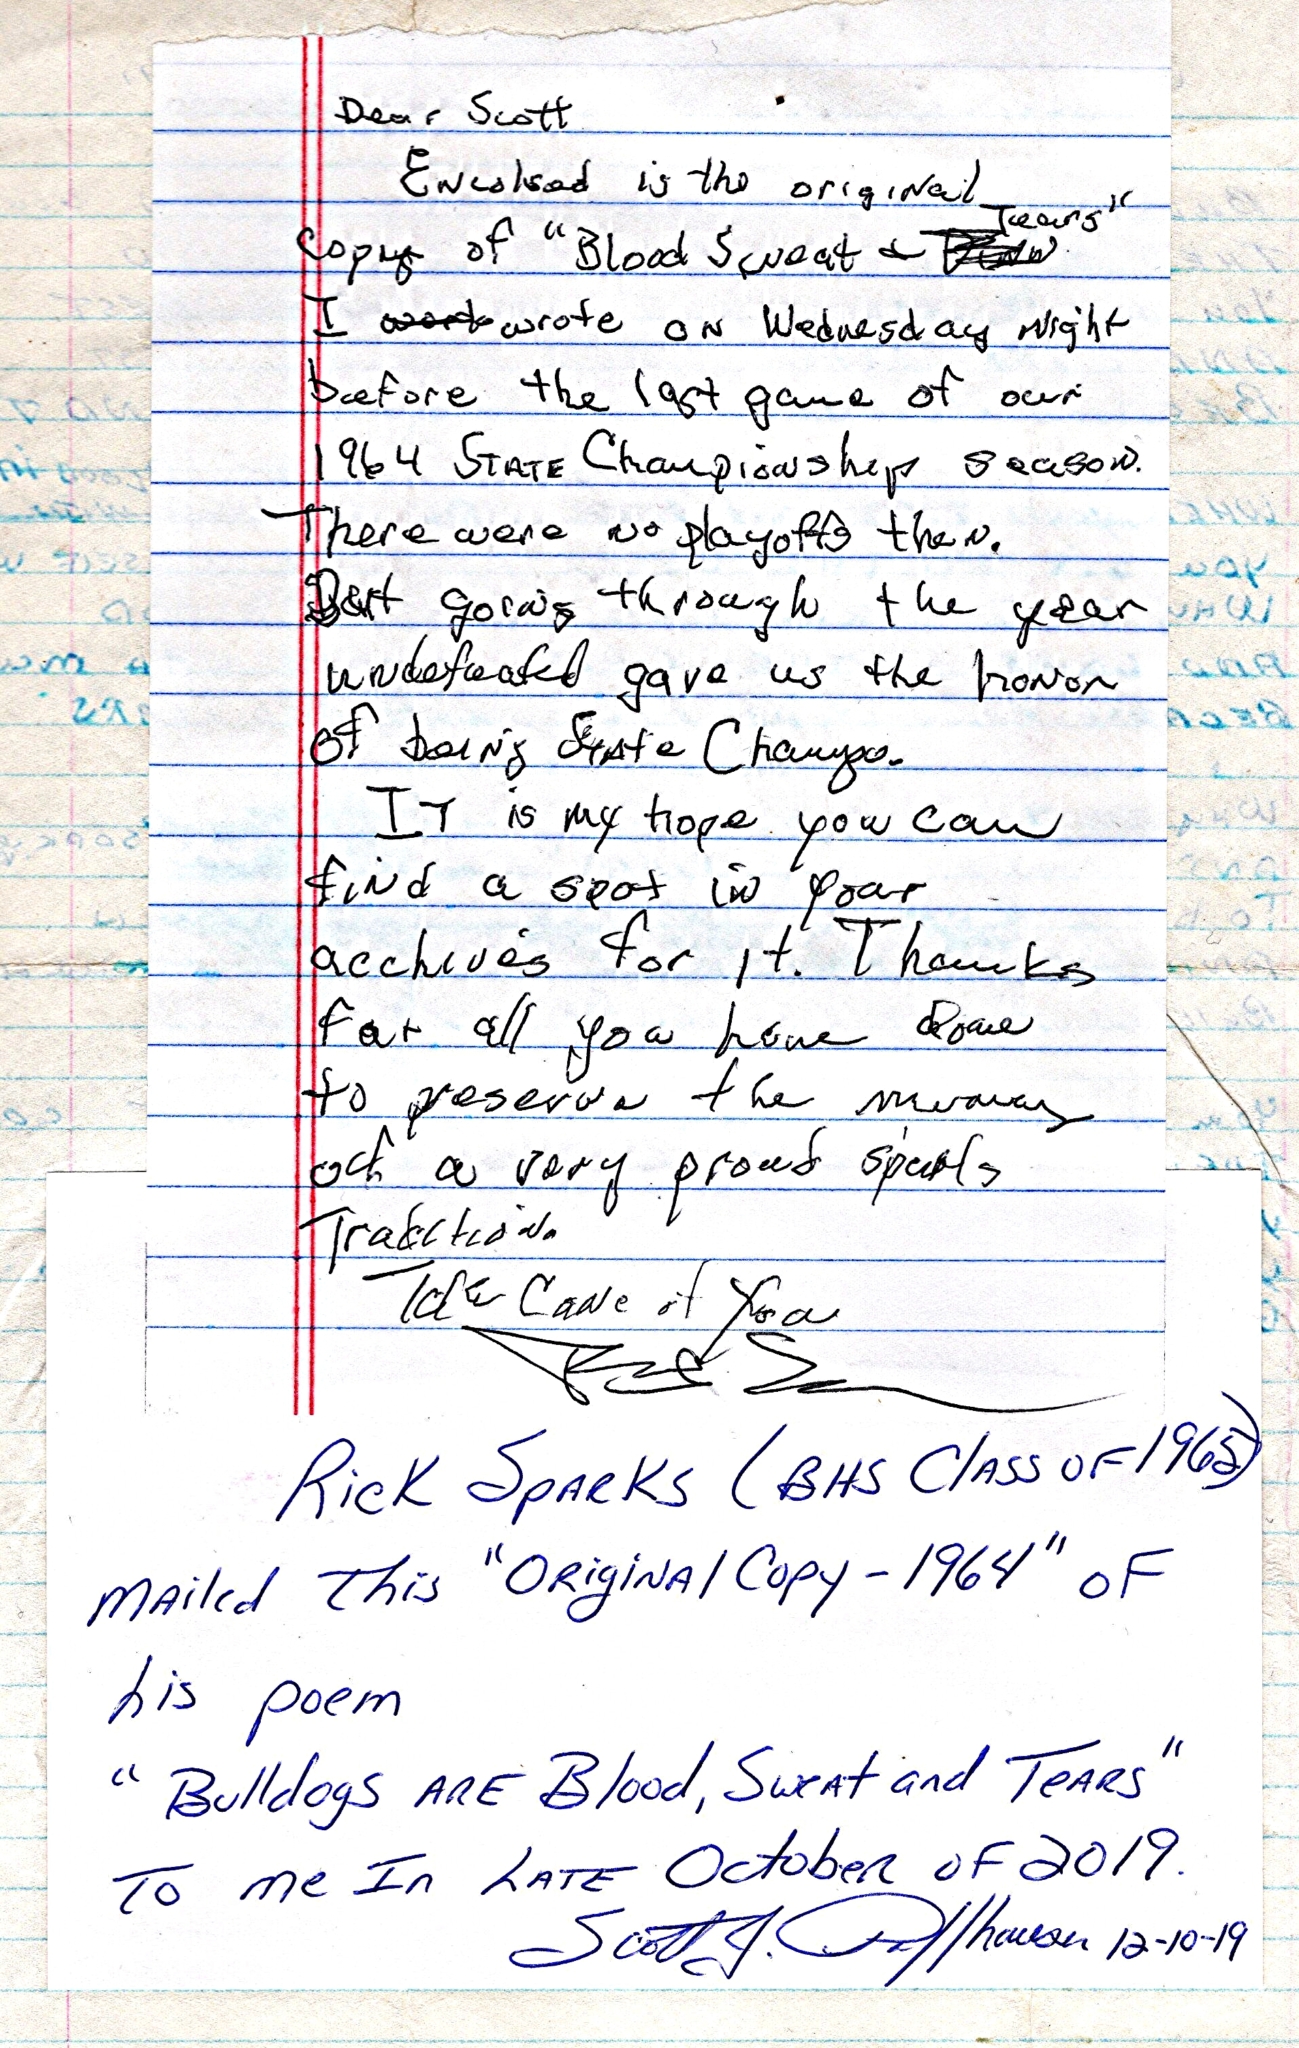 Dear Scott
Encolsed is the original
copy of "Blood Sweat & Tears"
I wrote on Wednesday night
before the last game of our
1964 STATE Championships season.
There were no playoffs then.
But going through the year
undefeated gave us the honor
of being State Champs.
IT is my hope you can
find a spot in your
acchives for it. Thanks
for all you have done
to preserve the memory
of a very proud sports
Tradition.
Take Care of You
Rick Sparks (BHS Class of 1965)
mailed this "Original Copy - 1964" of
his poem
"Bulldogs ARE Blood, Sweat and TEARS"
To me In LATE October of 2019.
Scott J. 12-10-19